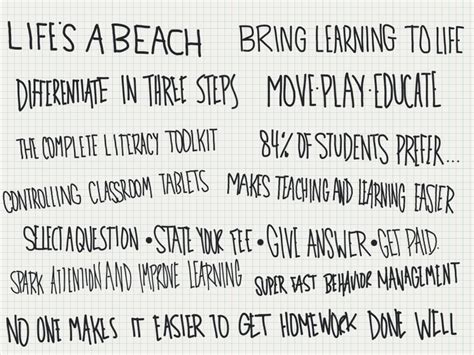 LIFE'S A BEACH
BRING LEARNING TO LIFE
DIFFERENTIATE IN THREE STEPS
MOVE·PLAY·EDUCATE
THE COMPLETE LITERACY TOOLKIT
84% OF STUDENTS PREFER...
CONTROLLING CLASSROOM TABLETS
MAKES TEACHING AND LEARNING EASIER
SELECT A QUESTION • STATE YOUR FEE • GIVE ANSWER • GET PAID.
SPARK ATTENTION AND IMPROVE LEARNING
SUPER FAST BEHAVIOR MANAGEMENT
NO ONE MAKES IT EASIER TO GET HOMEWORK DONE WELL